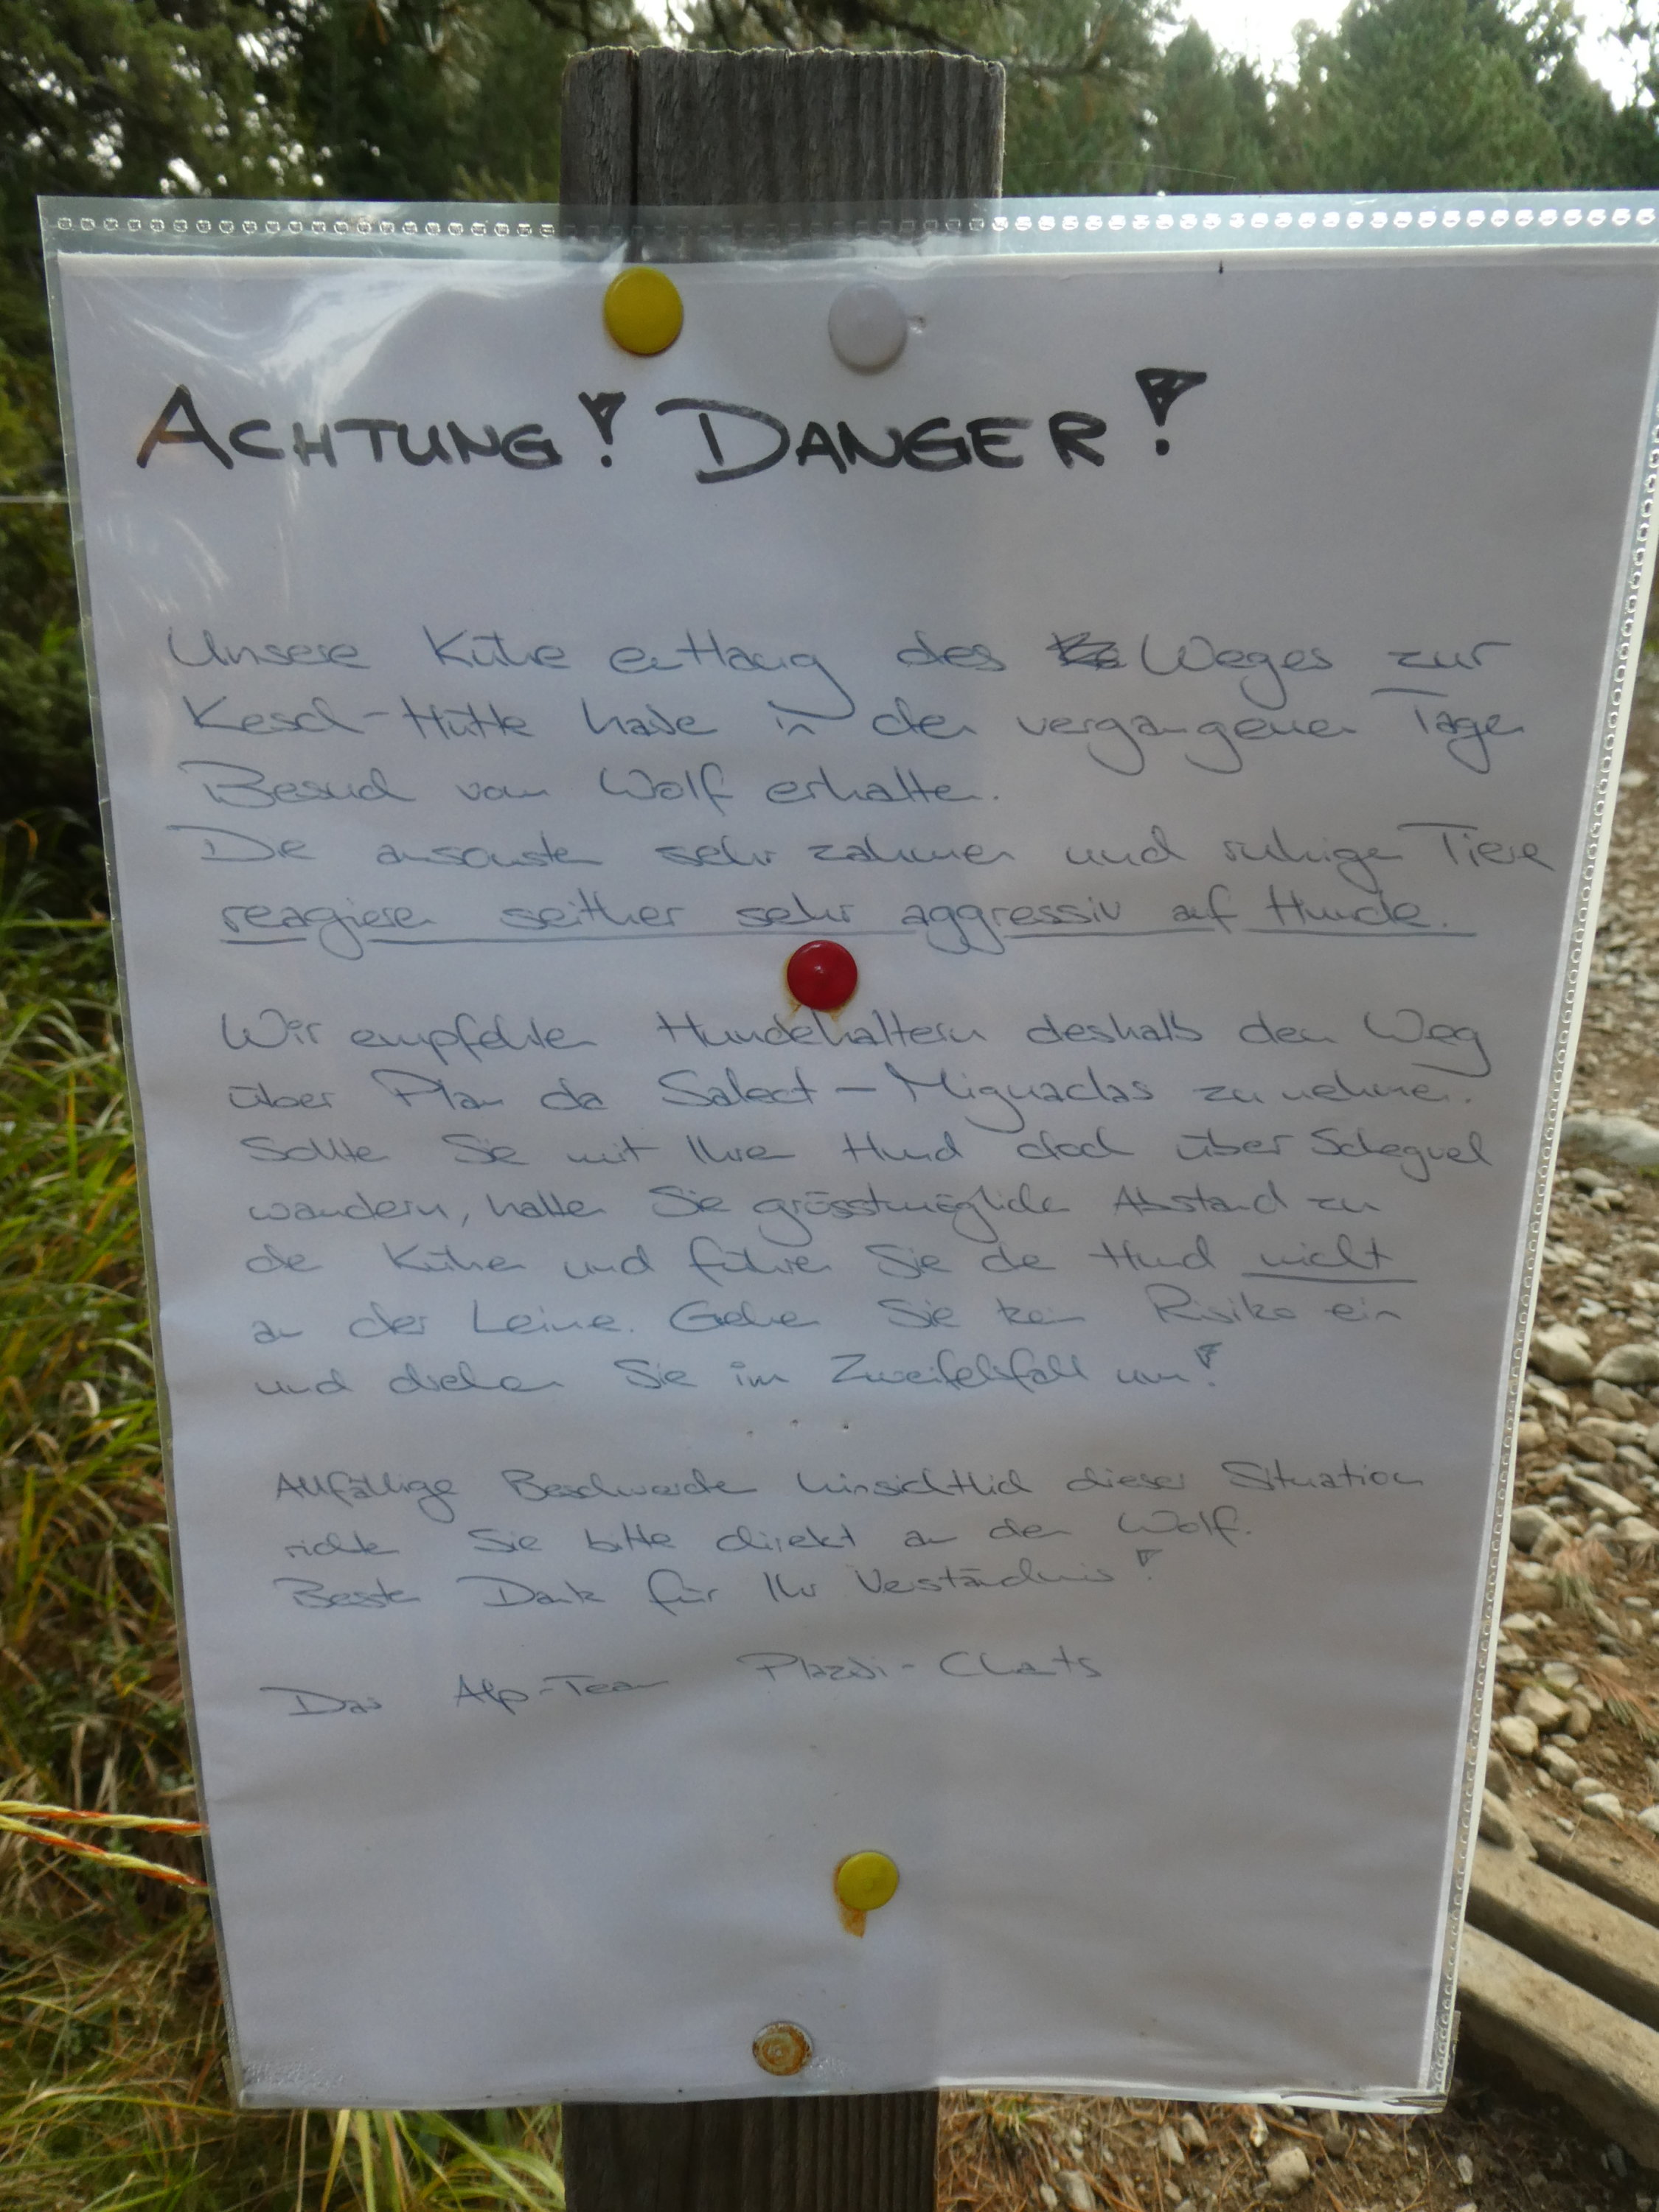 ACHTUNG! DANGER!
Unsere Kühe entlang des Weges zur
Kesch-Hütte haben in den vergangenen Tagen
Besuch vom Wolf erhalten.
Die ansonsten sehr zahmen und ruhigen Tiere
reagieren seither sehr aggressiv auf Hunde.
Wir empfehlen Hundehaltern deshalb den Weg
über Plan da Salect - Mignaclas zu nehmen.
Sollten Sie mit Ihrem Hund doch über Scheguel
wandern, halten Sie grösstmöglichen Abstand zu
den Kühen und führen Sie den Hund nicht
an der Leine. Gehen Sie kein Risiko ein
und drehen Sie im Zweifelsfall um!
Allfällige Beschwerden hinsichtlich dieser Situation
richten Sie bitte direkt an den Wolf.
Besten Dank für Ihr Verständnis!
Das Alp-Team Plazbi-Chants